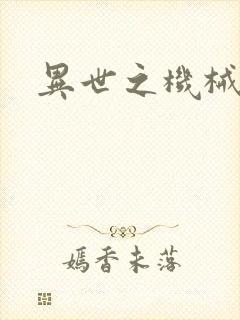 異世之機械
嫣香未落